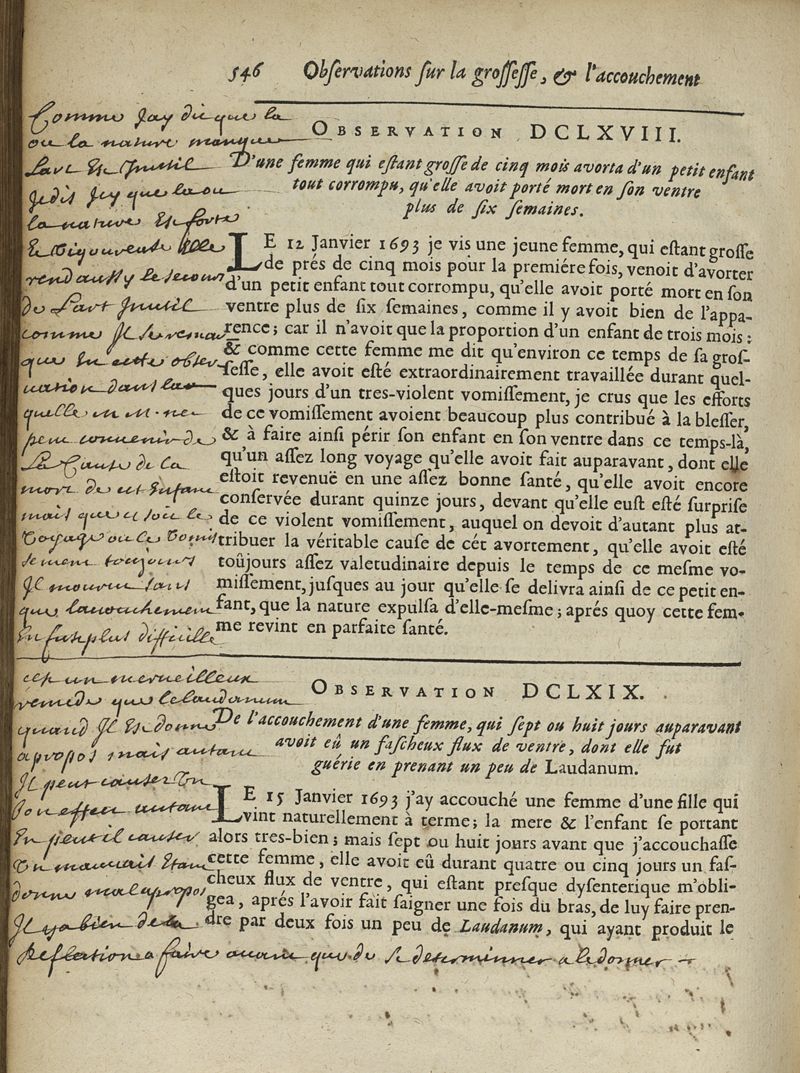 546 Obſervations ſur la groſſeſſe, & l'accouchement
OBSERVATION DCLXVIII.
D'une femme qui eſtant groſſe de cinq mois avorta d'un petit enfant
tout corrompu, qu'elle avoit porté mort en ſon ventre
plus de ſix ſemaines.
LE 12 Janvier 1693 je vis une jeune femme, qui eſtant groſſe
de prés de cinq mois pour la premiére fois, venoit d'avorter
d'un petit enfant tout corrompu, qu'elle avoit porté mort en ſon
ventre plus de ſix ſemaines, comme il y avoit bien de l'appa-
rence; car il n'avoit que la proportion d'un enfant de trois mois:
& comme cette femme me dit qu'environ ce temps de ſa groſ-
ſeſſe, elle avoit eſté extraordinairement travaillée durant quel-
ques jours d'un tres-violent vomiſſement, je crus que les efforts
de ce vomiſſement avoient beaucoup plus contribué à la bleſſer,
& à faire ainſi périr ſon enfant en ſon ventre dans ce temps-là,
qu'un aſſez long voyage qu'elle avoit fait auparavant, dont elle
eſtoit revenuë en une aſſez bonne ſanté, qu'elle avoit encore
conſervée durant quinze jours, devant qu'elle euſt eſté ſurpriſe
de ce violent vomiſſement, auquel on devoit d'autant plus at-
tribuer la véritable cauſe de cét avortement, qu'elle avoit eſté
toûjours aſſez valetudinaire depuis le temps de ce meſme vo-
miſſement, juſques au jour qu'elle ſe delivra ainſi de ce petit en-
fant, que la nature expulſa d'elle-meſme; aprés quoy cette fem-
me revint en parfaite ſanté.
OBSERVATION DCLXIX.
De l'accouchement d'une femme, qui ſept ou huit jours auparavant
avoit eû un faſcheux flux de ventre, dont elle fut
guérie en prenant un peu de Laudanum.
LE 15 Janvier 1693 j'ay accouché une femme d'une fille qui
vint naturellement à terme; la mere & l'enfant ſe portant
alors tres-bien; mais ſept ou huit jours avant que j'accouchaſſe
cette femme, elle avoit eû durant quatre ou cinq jours un faſ-
cheux flux de ventre, qui eſtant preſque dyſenterique m'obli-
gea, aprés l'avoir fait ſaigner une fois du bras, de luy faire pren-
dre par deux fois un peu de Laudanum, qui ayant produit le
Comme j'ay dit que la
ou la nature manque
l'art est inutil
je dis icy que la ou
la nature est forte
du l'art inutil
comme il
que en cette obser
vation dans la
quelle on
la cause de la
mort de cet enfant
mais que ce soit le
voyage ou le vomis
que l'accouchement
en fut plus difficille
cest un merveilleux
remede que le laudanum
quand il est donné
a propos mais autant
il peut causer un
bon effect autant
en peut il causer
un mauvais etant
donné mal a propos
il y a bien de la
reflection a faire avant que de se determinner a le donner